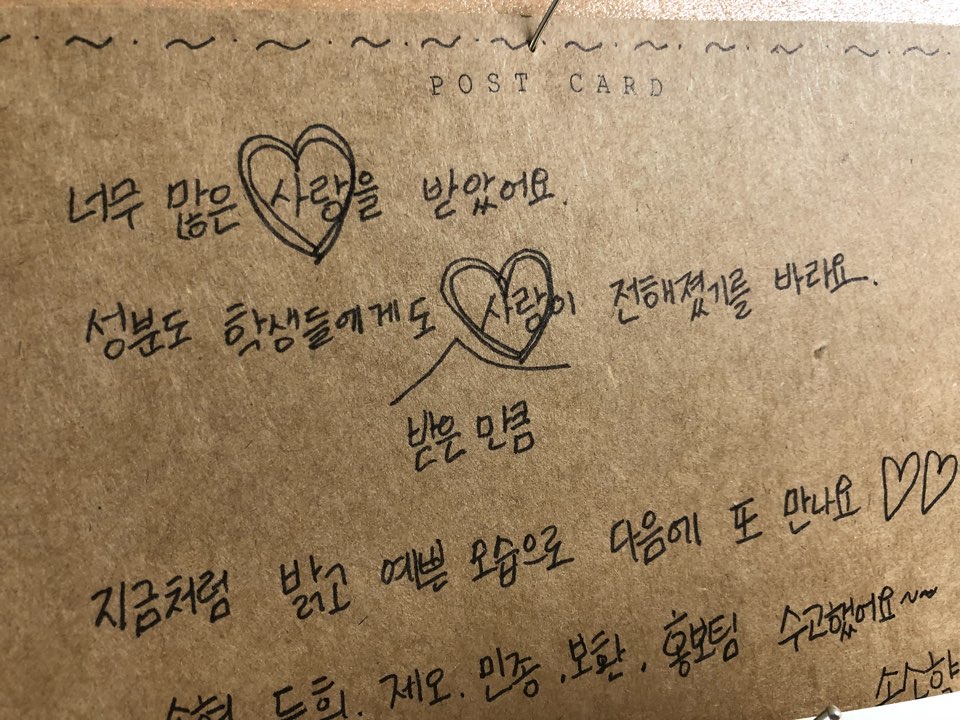 POST CARD
너무 많은 사랑을 받았어요.
성분도 학생들에게도 사랑이 전해졌기를 바라요.
받은 만큼
지금처럼 밝고 예쁜 모습으로 다음에 또 만나요 ♡♡
제오. 민종. 보환. 홍보팀 수고했어요~~